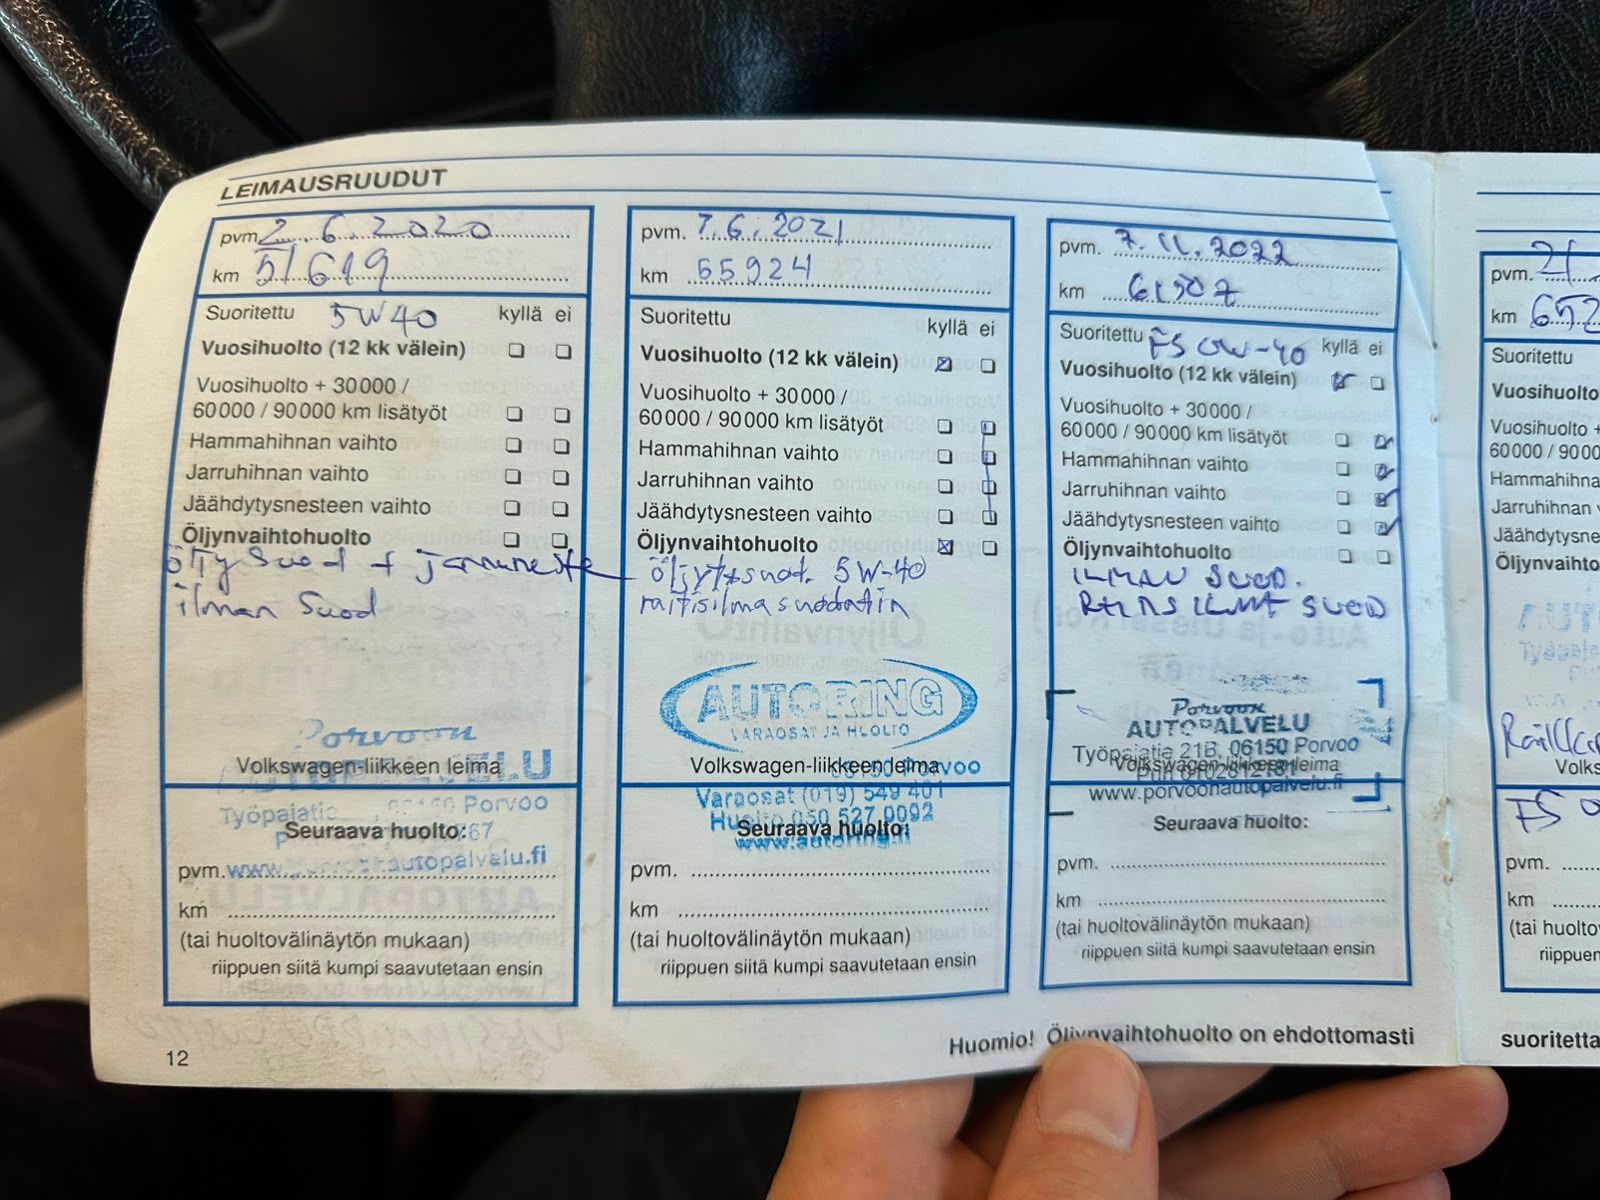 LEIMAUSRUUDUT
pvm. 2.6.2020
km 51619
Suoritettu 5W40 kyllä ei
Vuosihuolto (12 kk välein)
Vuosihuolto + 30000 /
60000 / 90000 km lisätyöt
Hammahihnan vaihto
Jarruhihnan vaihto
Jäähdytysnesteen vaihto
Öljynvaihtohuolto
öljy suod + jarruneste
ilman suod
Porvoon
Volkswagen-liikkeen leima
Työpajatie Porvoo
Seuraava huolto:
pvm.
km
(tai huoltovälinäytön mukaan)
riippuen siitä kumpi saavutetaan ensin
12
pvm. 7.6.2021
km 55924
Suoritettu
kyllä ei
Vuosihuolto (12 kk välein)
Vuosihuolto + 30000 /
60000 / 90000 km lisätyöt
Hammahihnan vaihto
Jarruhihnan vaihto
Jäähdytysnesteen vaihto
Öljynvaihtohuolto
öljyt+suod. 5W-40
raitisilmasuodatin
AUTORING
VARAOSAT JA HUOLTO
Volkswagen-liikkeen leima
06150 Porvoo
Varaosat (019) 549 401
Huolto 050 527 0092
Seuraava huolto:
www.autoring.fi
pvm.
km
(tai huoltovälinäytön mukaan)
riippuen siitä kumpi saavutetaan ensin
pvm. 7.11.2022
km 61507
Suoritettu FS 0W-40 kyllä ei
Vuosihuolto (12 kk välein)
Vuosihuolto + 30000 /
60000 / 90000 km lisätyöt
Hammahihnan vaihto
Jarruhihnan vaihto
Jäähdytysnesteen vaihto
Öljynvaihtohuolto
ILMAN SUOD.
SUOD
Porvoon
AUTOPALVELU
Työpajatie 21B, 06150 Porvoo
Volkswagen-liikkeen leima
www.porvoonautopalvelu.fi
Seuraava huolto:
pvm.
km
(tai huoltovälinäytön mukaan)
riippuen siitä kumpi saavutetaan ensin
Huomio! Öljynvaihtohuolto on ehdottomasti
pvm.
km 652
Suoritettu
Vuosihuolto
Vuosihuolto +
60000 / 9000
Hammahihna
Jarruhihnan
Jäähdytysne
Öljynvaihtoh
Volks
FS
pvm.
km
(tai huolto
riippuen
suoritetta